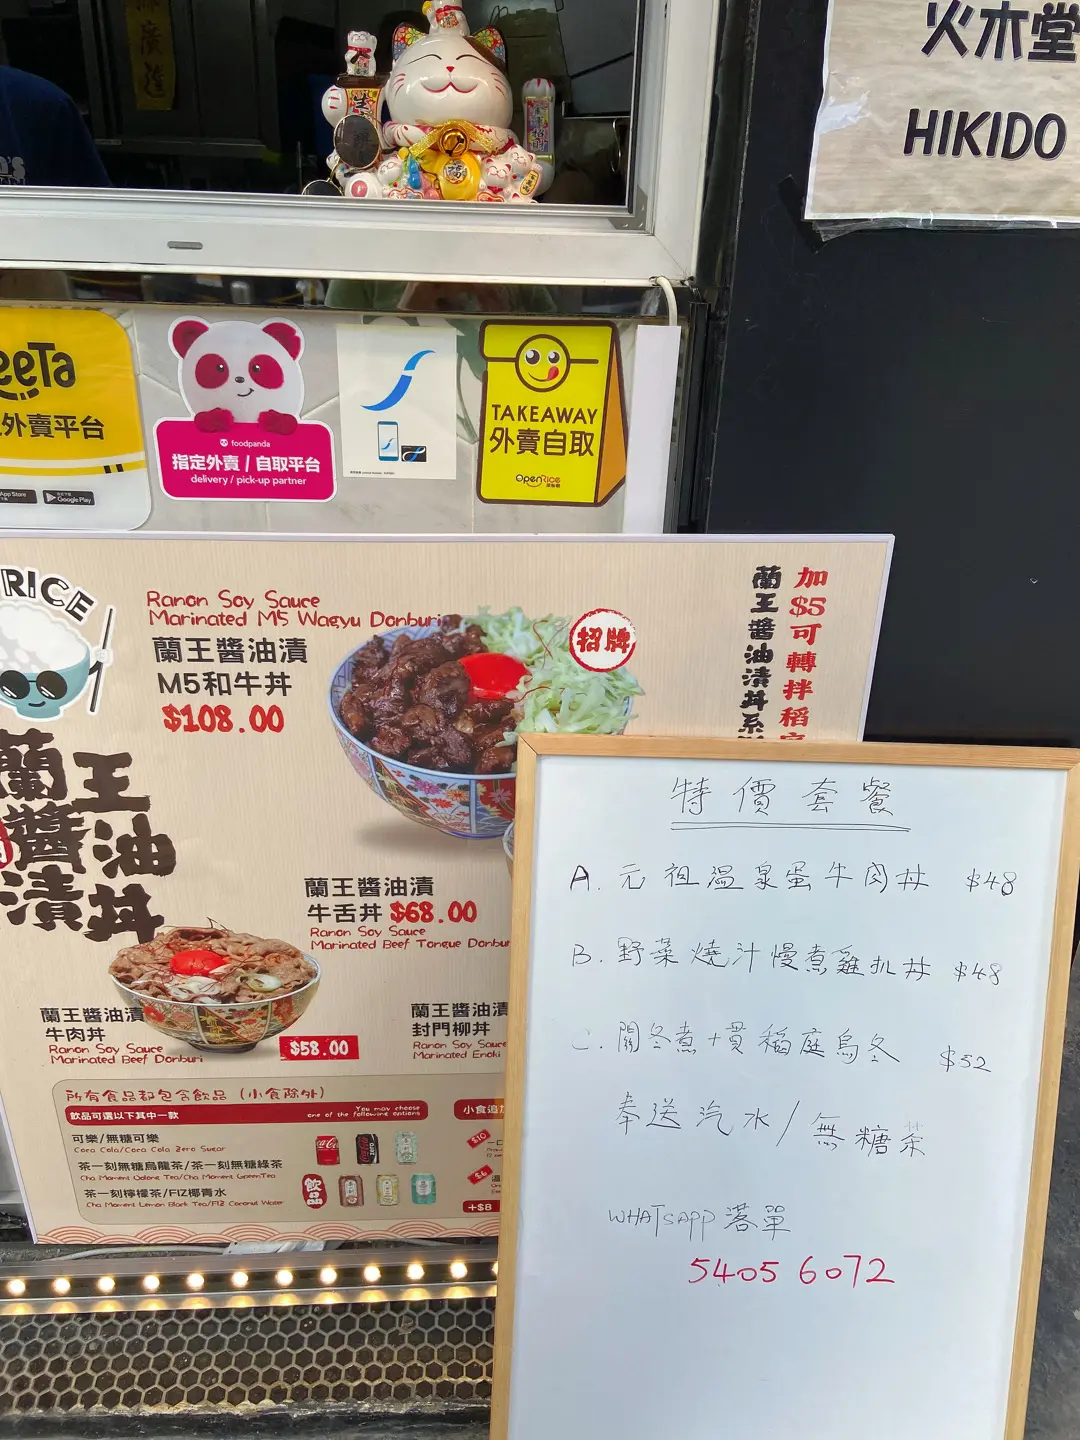 火木堂
HIKIDO
eeTa
外賣平台
App Store
Google Play
foodpanda
指定外賣 / 自取平台
delivery / pick-up partner
TAKEAWAY
外賣自取
OpenRice
RICE
Ranon Soy Sauce
Marinated M5 Wagyu Donburi
蘭王醬油漬
M5和牛丼
$108.00
招牌
加$5可轉拌稻
蘭王醬油漬丼系
蘭王
醬油
漬丼
蘭王醬油漬
牛舌丼 $68.00
Ranon Soy Sauce
Marinated Beef Tongue Donbur
蘭王醬油漬
牛肉丼
Ranon Soy Sauce
Marinated Beef Donburi
$58.00
蘭王醬油漬
封門柳丼
Ranon Soy Sauce
Marinated Enoki
所有食品都包含飲品 (小食除外)
飲品可選以下其中一款
You may choose
one of the following options
可樂/無糖可樂
Coca Cola/Coca Cola Zero Sugar
茶一刻無糖烏龍茶/茶一刻無糖綠茶
Cha Moment Oolong Tea/Cha Moment GreenTea
茶一刻檸檬茶/FIZ椰青水
Cha Moment Lemon Black Tea/FIZ Coconut Water
飲品
小食追加
$10
$6
+$8
特價套餐
A. 元祖溫泉蛋牛肉丼 $48
B. 野菜燒汁慢煮雞扒丼 $48
C. 關冬煮+貫稻庭烏冬 $52
奉送汽水/無糖茶
WHATSAPP 落單
5405 6072